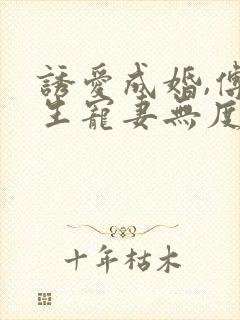 誘愛成婚,傅
生寵妻無度
十年枯木